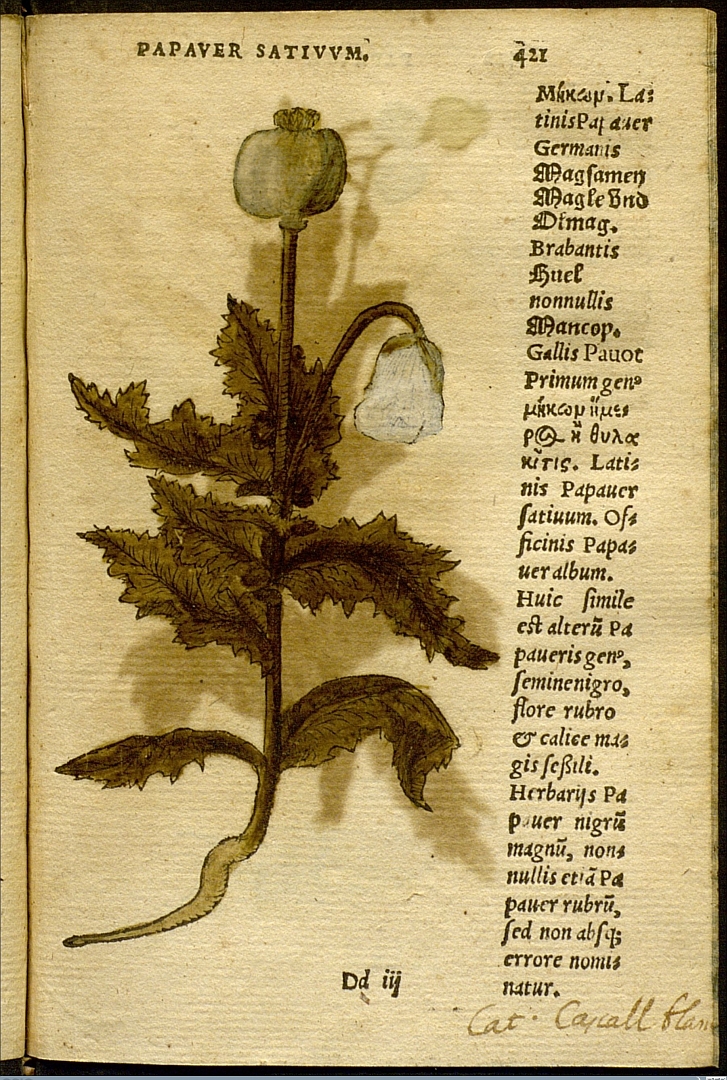 PAPAVER SATIVVM.
421
Μήκωμ. La⸗
tinis Papauer
Germanis
Magsamen
Magle vnd
Ölmag.
Brabantis
Huel
nonnullis
Mancop.
Gallis Pauot
Primum genꝰ
μήκωμ ἥμε⸗
ρ ἢ θυλα
κῖτις. Lati⸗
nis Papauer
ſatiuum. Of⸗
ficinis Papa⸗
uer album.
Huic ſimile
eſt alterũ Pa
paueris genꝰ,
ſemine nigro,
flore rubro
& calice ma⸗
gis ſeßili.
Herbarijs Pa
pauer nigrũ
magnũ, non⸗
nullis etiã Pa
pauer rubrũ,
ſed non abſq;
errore nomi⸗
natur.
Dd iij
Cat. Cascall blan